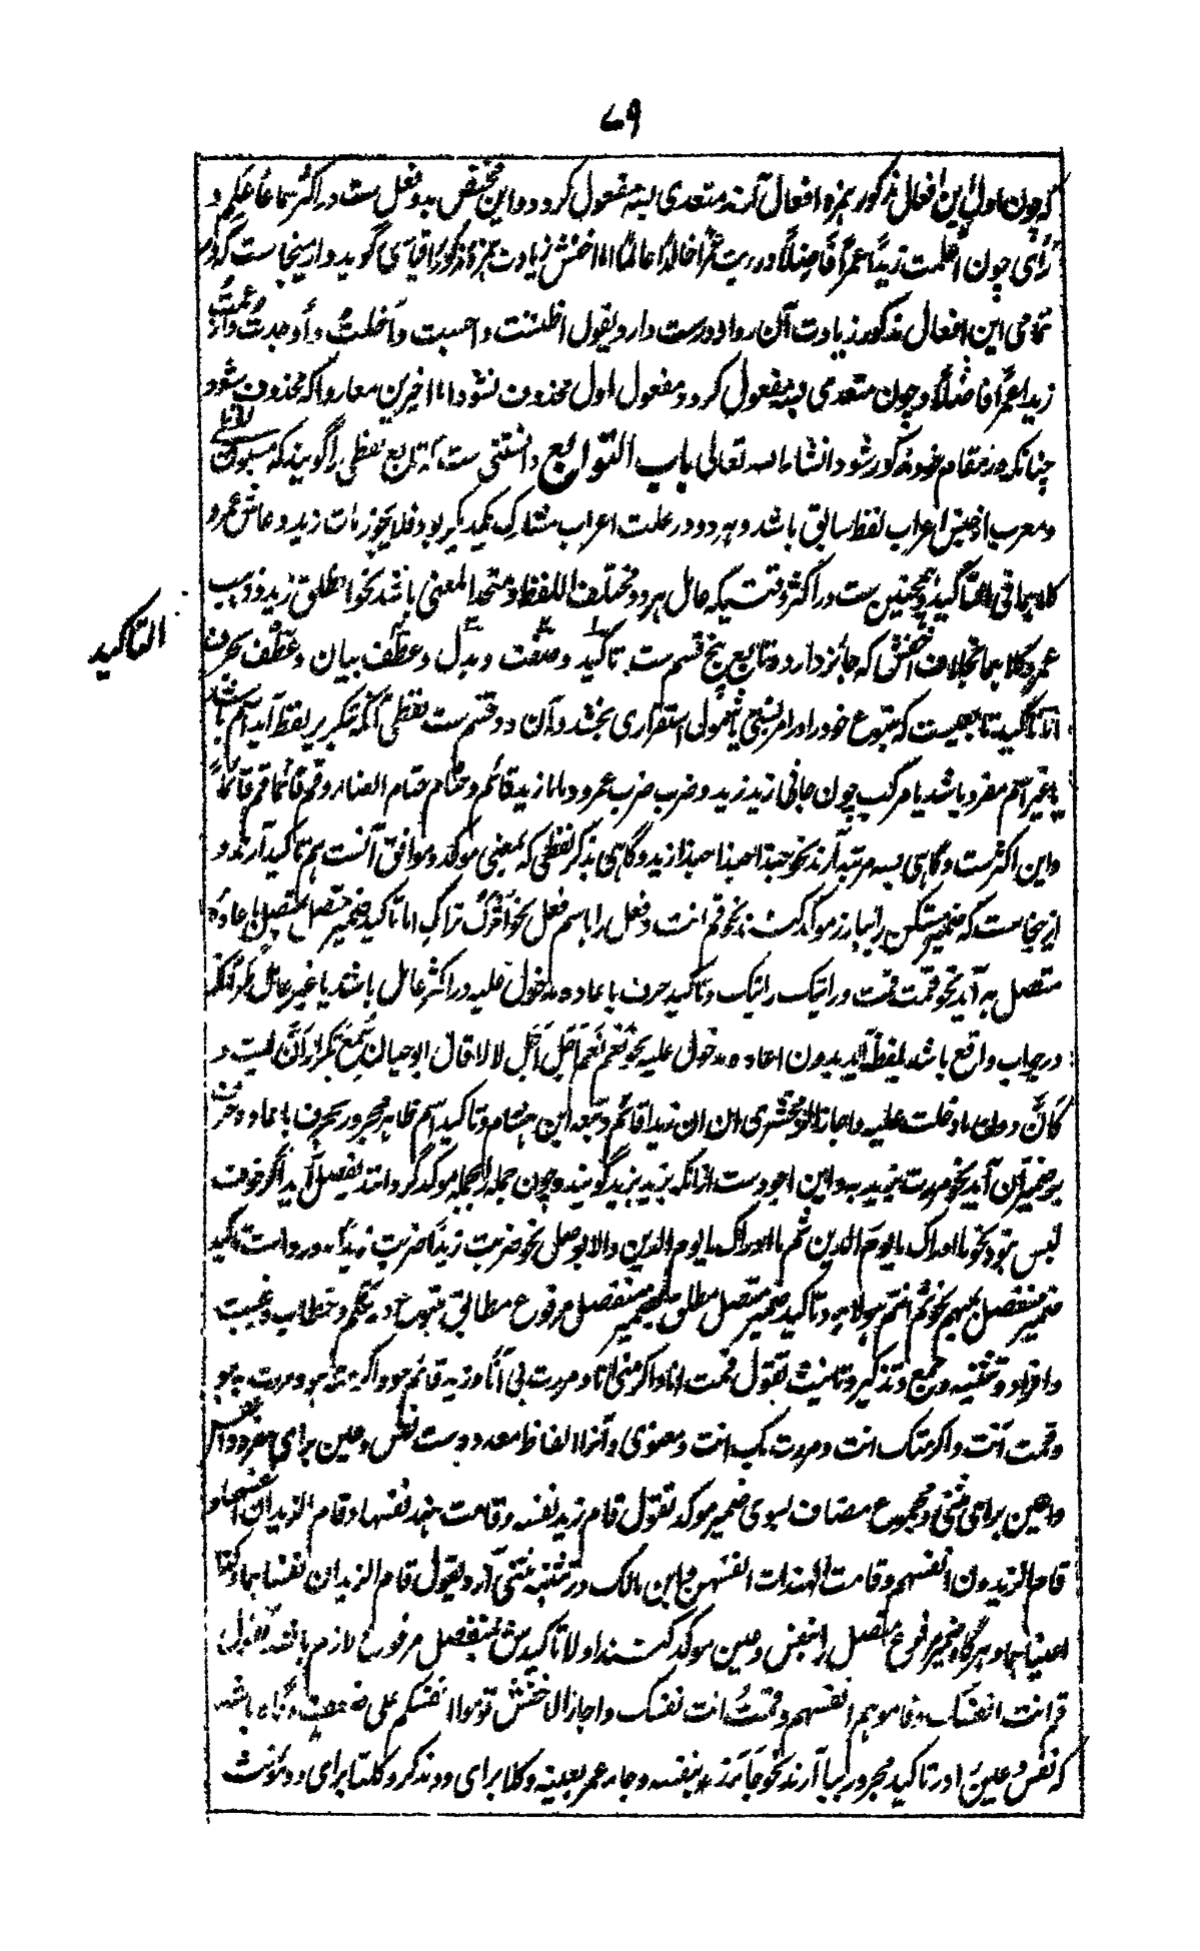 ۷۹
که چون اول این افعال مذکور بهمزه افعال آرند متعدی بسه مفعول گردد و این مختص بدو فعل ست در اکثر سماعا علم و
رأی چون اعلمت زیدا عمرا فاضلا و اریت عمرا خالدا عالما اما اخفش زیادت همزه مذکور را قیاسی گوید و ازینجاست که در
تمامی این افعال مذکور زیادت آن روا و درست دارد یقول اظننت و احسبت و أخلت و أوجدت و أزعمت
زیدا عمرا فاضلا و چون متعدی بسه مفعول گردد مفعول اول محذوف نشود اما اخیرین معا روا که محذوف شود
چنانکه در مقام خود مذکور شود انشاء الله تعالی باب التوابع دانستنی ست که تابع لفظی را گویند که مسبوق
و معرب از جنس اعراب لفظ سابق باشد و هر دو در علت اعراب مشارک یکدیگر بود فلا یجوز مات زید و عاش عمرو
کلاهما فی التاکید و همچنین ست در اکثر وقتیکه عامل هر دو مختلف اللفظ و متحد المعنی باشد نحو انطلق زید و ذهب
عمرو کلاهما بخلاف اخفش که جائز دارد و تابع پنج قسم ست تاکید و صفت و بدل و عطف بیان و عطف بحرف
التاکید
اما تاکید تابعیست که متبوع خود را در امر نسبتی یا شمولی استقراری بخشد و آن دو قسم ست لفظی آنکه بتکریر لفظ آید اسم باشد
یا غیر اسم مفرد باشد یا مرکب چون جانی زید زید و ضرب ضرب عمرو و اما زید قائم و حتام حتام العناء و قم قائما قم قائما
و این اکثرست و گاهی بسه مرتبه آرند نحو حبذا حبذا حبذا زید و گاهی بذکر لفظی که بمعنی موکد و موافق آنست هم تاکید آرند و
ازینجاست که ضمیر مستکن را ببارز موکد کنند نحو قم انت و فعل را باسم فعل نحو اترک تراک اما تاکید ضمیر متصل بمتصل باعاده
متصل به آید نحو قمت قمت و رأیتک رأیتک و تاکید حرف باعاده مدخول علیه در اکثر عامل باشد یا غیر عامل مگر آنکه
در جواب واقع باشد بلفظه آید بدون اعاده مدخول علیه نحو نعم نعم اجل اجل لا لا قال ابو حیان یسمع تکرار أن لیت و
کأن دون ما دخلت علیه و اجاز الزمخشری ان ان زیدا قائم و تبعه ابن هشام و تاکید اسم ظاهر مجرور بحرف باعاده حرف
بر ضمیر آن آید نحو مررت بزید به و این اجودست ازانکه بزید بزید گویند و چون جمله را بجمله موکد گردانند بفصل آید اگر خوف
لبس نبود نحو ما ادراک ما یوم الدین ثم ما ادراک ما یوم الدین و الا بوصل نحو ضربت زیدا ضربت زیدا و رواست تاکید
ضمیر منفصل بمبهم نحو ثم انتم هولاء و تاکید ضمیر متصل مطلق بضمیر منفصل مرفوع مطابق متبوع در تکلم و خطاب و غیبت
و افراد و تثنیه و جمع و تذکیر و تانیث تقول قمت انا و اکرمنی انا و مررت بی انا و زید قائم هو و اکرمته هو و مررت به هو
و قمت أنت و اکرمتک انت و مررت بک انت و معنوی و آنرا الفاظ معدودست نفس و عین برای مفرد و انفس
و اعین برای مثنی و مجموع مضاف بسوی ضمیر موکد تقول قام زید نفسه و قامت هند نفسها و قام الزیدان انفسهما و
قام الزیدون انفسهم و قامت الهندات انفسهن و ابن مالک در تثنیه مثنی آرد یقول قام الزیدان نفساهما و کذا
اعیناهما و هرگاه ضمیر مرفوع متصل را بنفس و عین موکد کنند اولا تاکیدش بمنفصل مرفوع لازم باشد تقول
قم انت انفسک و قاموا هم انفسهم و قمت انت نفسک و اجاز الاخفش قوموا انفسکم علی ضعف و گاه باشد
که نفس و عین را در تاکید مجرور ببا آرند نحو جاء زید بنفسه و جاء عمر بعینه و کلا برای دو مذکر و کلتا برای دو مونث